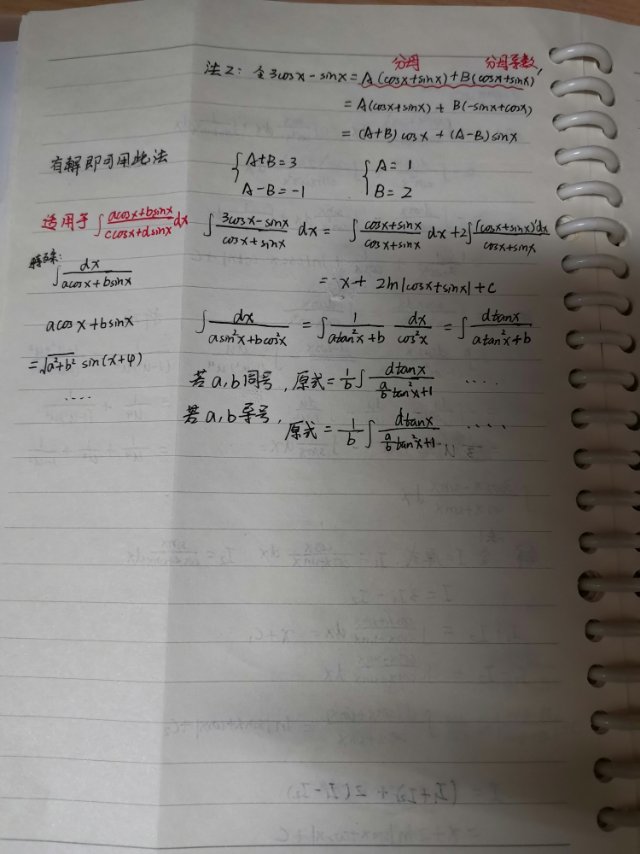 分母 分母导数
法2: 令3cosx-sinx = A(cosx+sinx)+B(cosx+sinx)'
= A(cosx+sinx) + B(-sinx+cosx)
= (A+B)cosx + (A-B)sinx
有解即可用此法
{A+B=3 {A=1
A-B=-1 B=2
适用于∫(acosx+bsinx)/(ccosx+dsinx)dx
∫(3cosx-sinx)/(cosx+sinx) dx = ∫(cosx+sinx)/(cosx+sinx) dx+2∫(cosx+sinx)'dx/(cosx+sinx)
= x+ 2ln|cosx+sinx|+c
∫dx/(acosx+bsinx)
acosx+bsinx
=√(a²+b²) sin(x+φ)
....
∫dx/(asin²x+bcos²x) = ∫1/(atan²x+b) dx/cos²x = ∫dtanx/(atan²x+b)
若a,b同号, 原式=1/b∫dtanx/(a/b tan²x+1) ....
若a,b异号, 原式=1/b∫dtanx/(a/b tan²x+1) ....